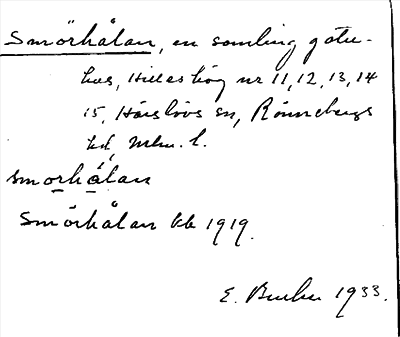 Smörhålan, en samling gatu-
hus, Hilleshög nr 11, 12, 13, 14
15, Härslövs sn, Rönnebergs
hd, Mlm. l.
smorhålan
Smörhålan kb 1919.
E. 1933.